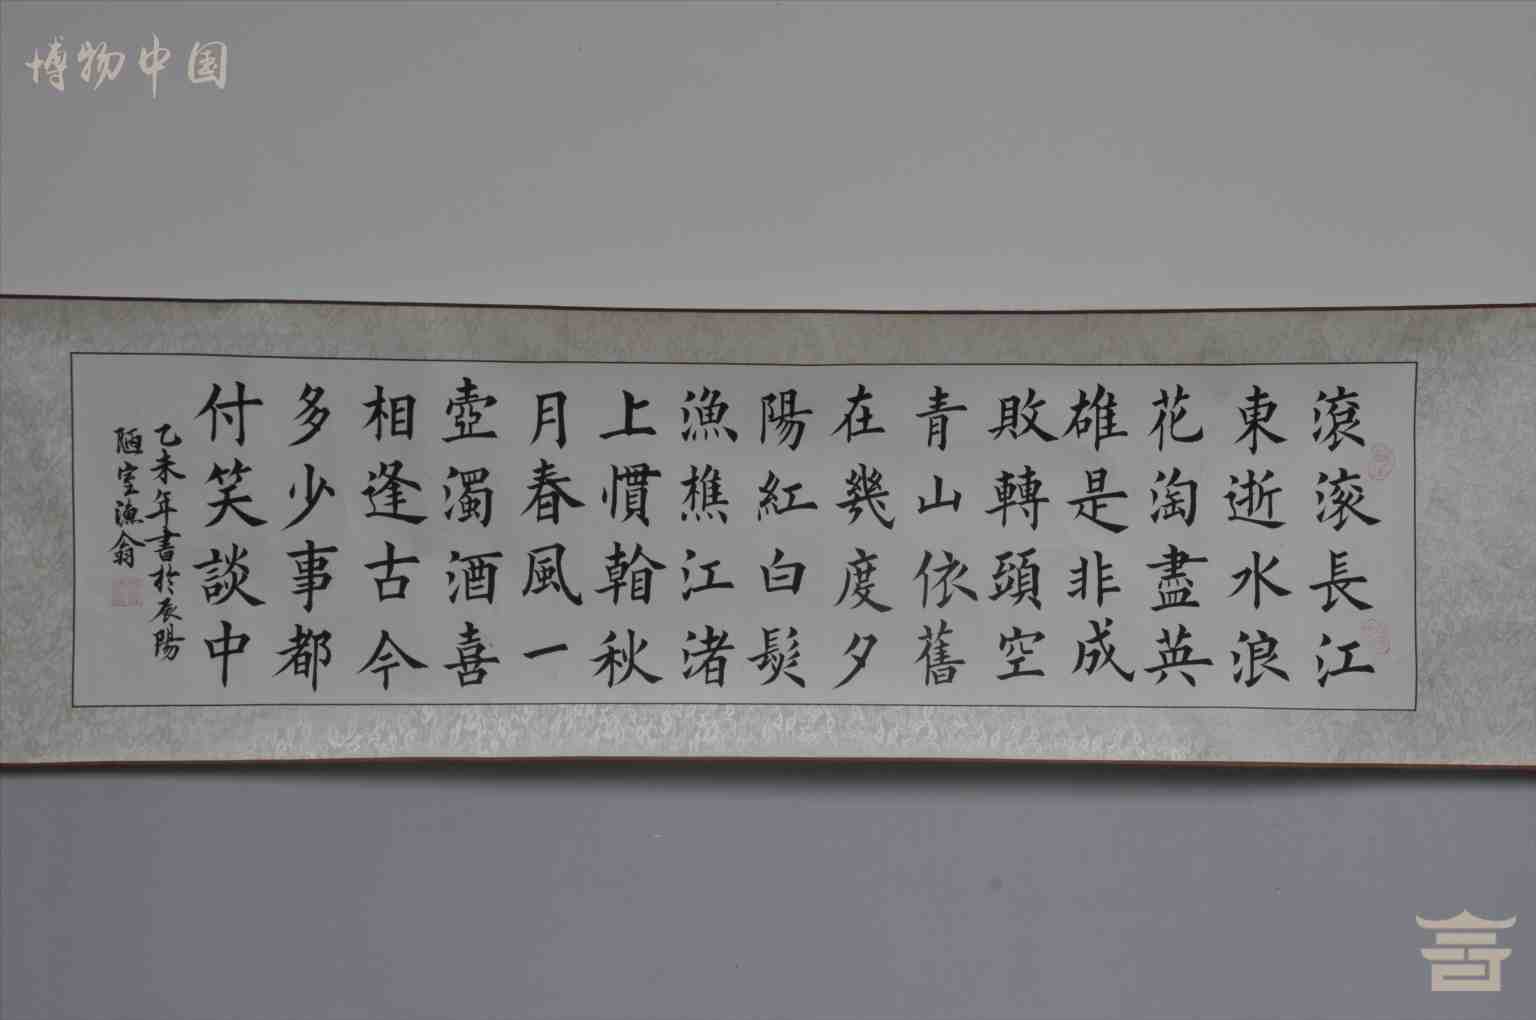 博物中国
滾滚長江
東逝水浪
花淘盡英
雄是非成
敗轉頭空
青山依舊
在幾度夕
陽紅白髮
漁樵江渚
上慣秋
月春風一
壺濁酒喜
相逢古今
多少事都
付笑談中
乙未年書於辰陽
陋室漁翁